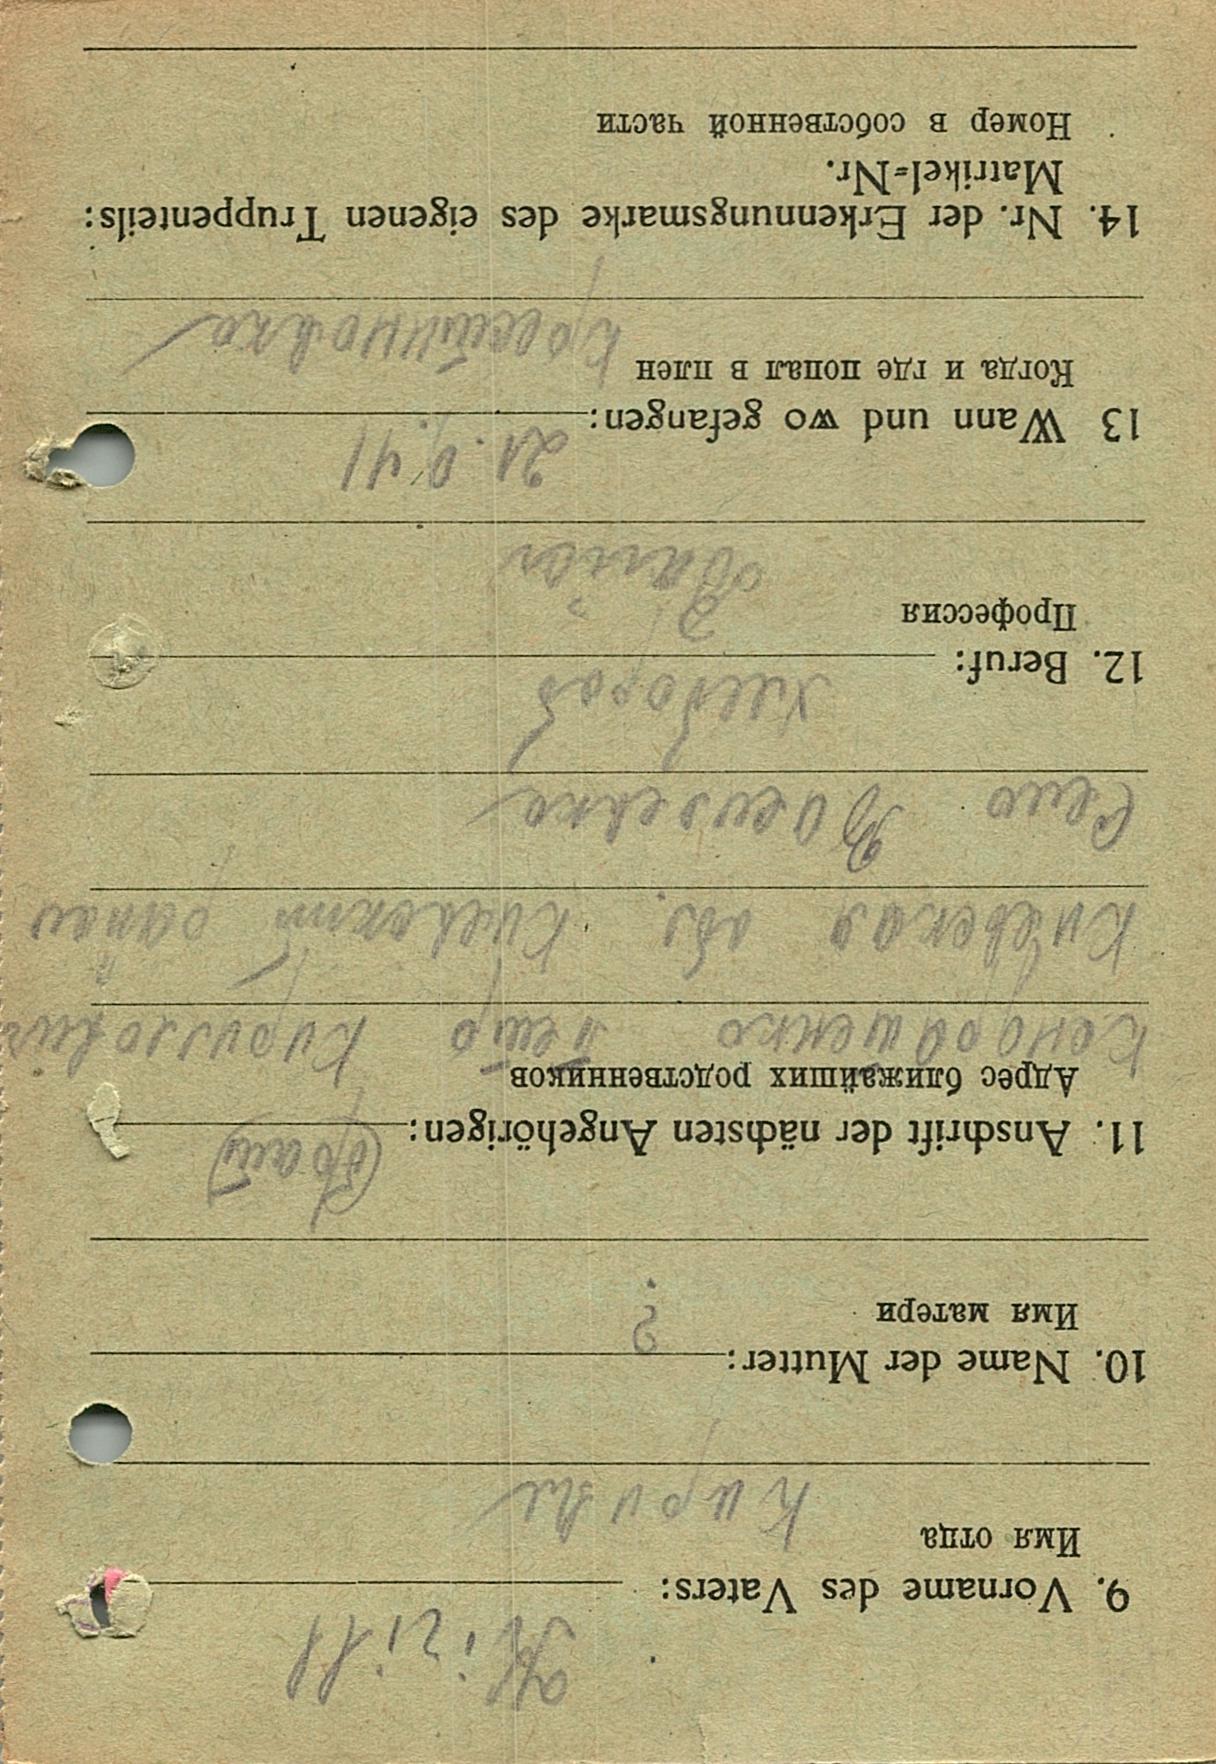 Kirill
9. Vorname des Vaters:
Имя отца
Кирилл
10. Name der Mutter: ?
Имя матери
(брат)
11. Anschrift der nächsten Angehörigen:
Адрес ближайших родственников
Петро Кирилович
Киевская обл. Киевский район
Село
хлебороб
12. Beruf:
Профессия
21.9.41
13 Wann und wo gefangen:
Когда и где попал в плен
14. Nr. der Erkennungsmarke des eigenen Truppenteils:
Matrikel=Nr.
Номер в собственной части